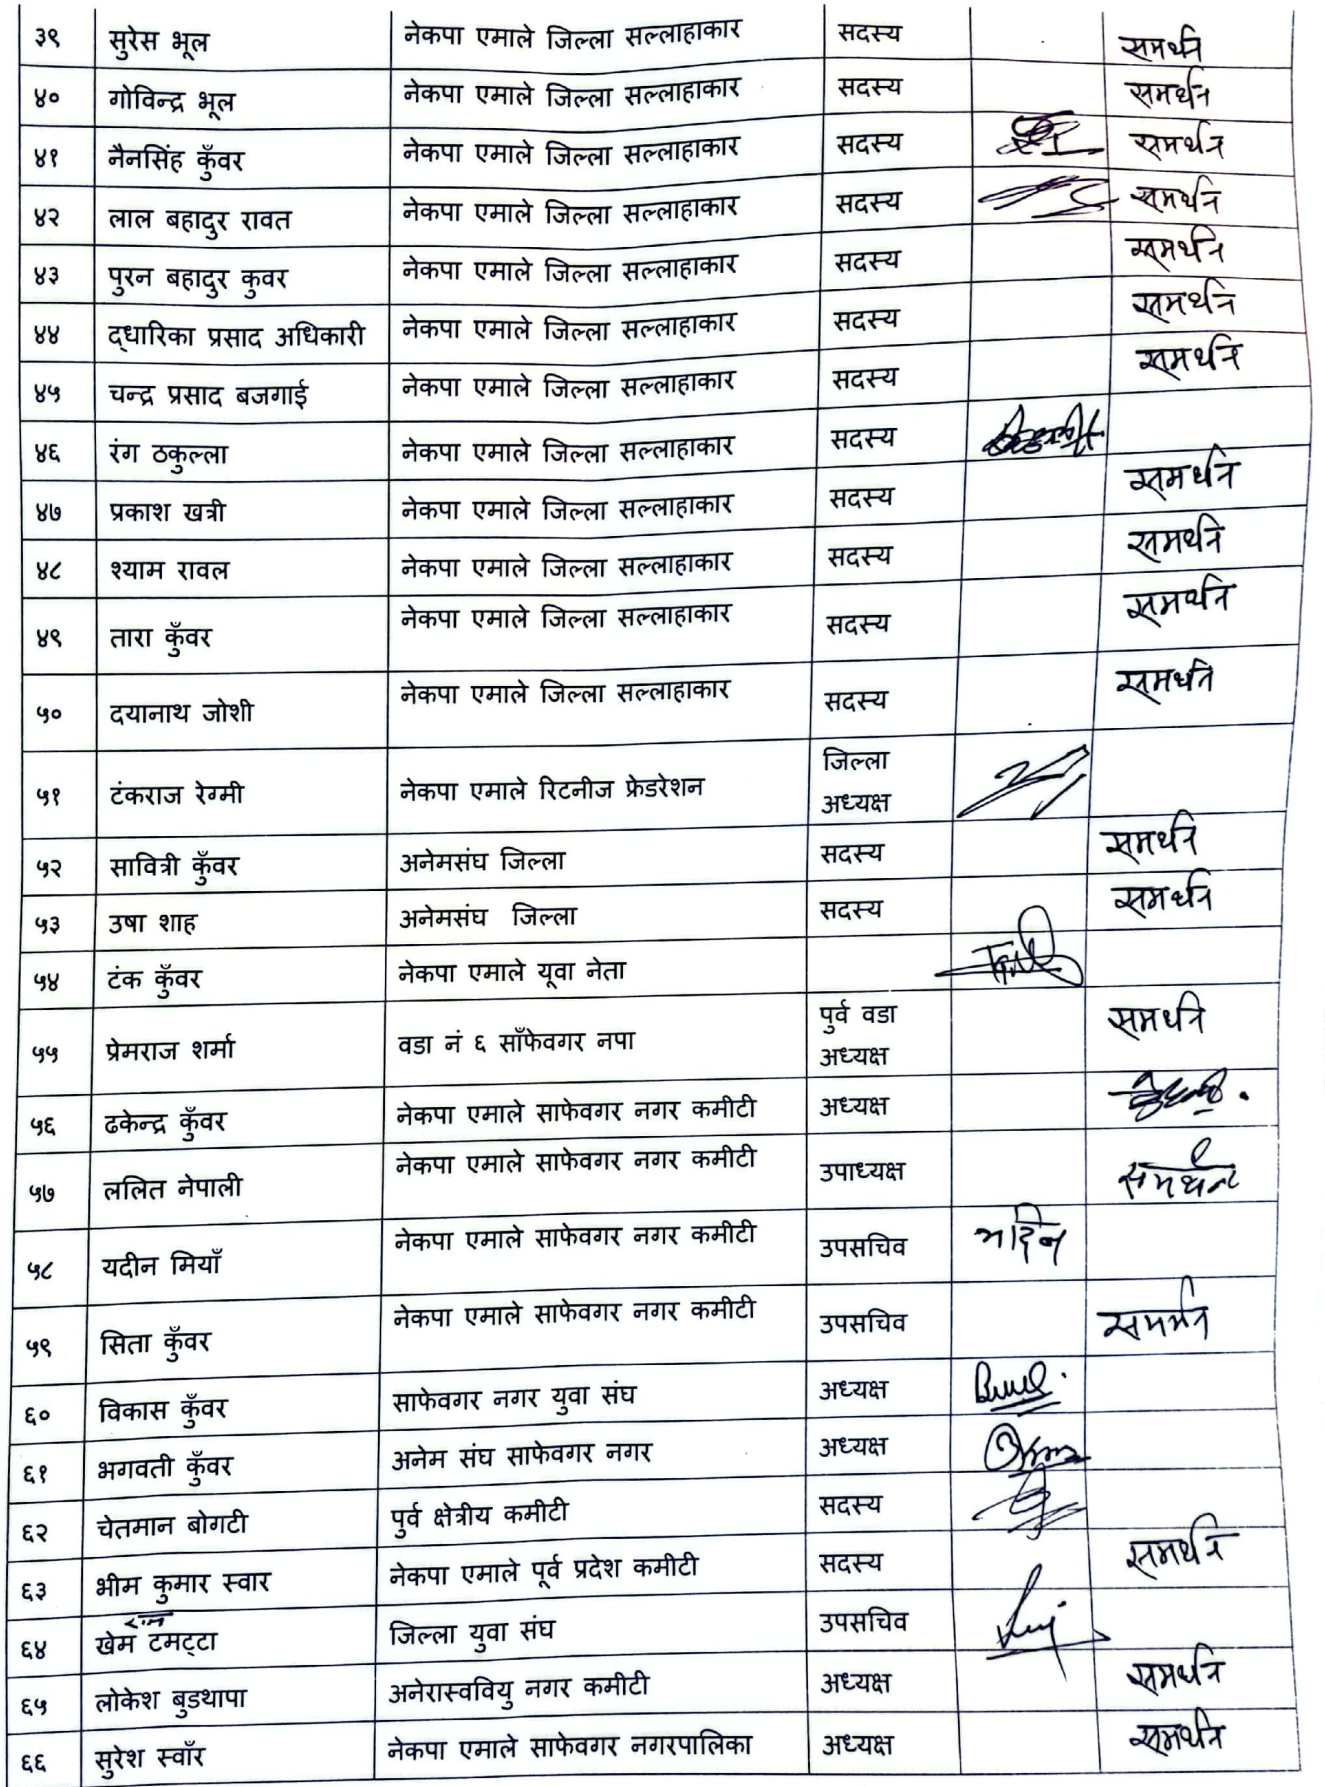 ३९ सुरेस भूल नेकपा एमाले जिल्ला सल्लाहाकार सदस्य समर्थन
४० गोविन्द्र भूल नेकपा एमाले जिल्ला सल्लाहाकार सदस्य समर्थन
४१ नैनसिंह कुँवर नेकपा एमाले जिल्ला सल्लाहाकार सदस्य समर्थन
४२ लाल बहादुर रावत नेकपा एमाले जिल्ला सल्लाहाकार सदस्य समर्थन
४३ पुरन बहादुर कुवर नेकपा एमाले जिल्ला सल्लाहाकार सदस्य समर्थन
४४ द्धारिका प्रसाद अधिकारी नेकपा एमाले जिल्ला सल्लाहाकार सदस्य समर्थन
४५ चन्द्र प्रसाद बजगाई नेकपा एमाले जिल्ला सल्लाहाकार सदस्य समर्थन
४६ रंग ठकुल्ला नेकपा एमाले जिल्ला सल्लाहाकार सदस्य
४७ प्रकाश खत्री नेकपा एमाले जिल्ला सल्लाहाकार सदस्य समर्थन
४८ श्याम रावल नेकपा एमाले जिल्ला सल्लाहाकार सदस्य समर्थन
४९ तारा कुँवर नेकपा एमाले जिल्ला सल्लाहाकार सदस्य समर्थन
५० दयानाथ जोशी नेकपा एमाले जिल्ला सल्लाहाकार सदस्य समर्थन
५१ टंकराज रेग्मी नेकपा एमाले रिटनीज फ्रेडरेशन जिल्ला
अध्यक्ष
५२ सावित्री कुँवर अनेमसंघ जिल्ला सदस्य समर्थन
५३ उषा शाह अनेमसंघ जिल्ला सदस्य समर्थन
५४ टंक कुँवर नेकपा एमाले यूवा नेता
५५ प्रेमराज शर्मा वडा नं ६ साँफेवगर नपा पुर्व वडा
अध्यक्ष समर्थन
५६ ढकेन्द्र कुँवर नेकपा एमाले साफेवगर नगर कमीटी अध्यक्ष
५७ ललित नेपाली नेकपा एमाले साफेवगर नगर कमीटी उपाध्यक्ष समर्थन
५८ यदीन मियाँ नेकपा एमाले साफेवगर नगर कमीटी उपसचिव
५९ सिता कुँवर नेकपा एमाले साफेवगर नगर कमीटी उपसचिव समर्थन
६० विकास कुँवर साफेवगर नगर युवा संघ अध्यक्ष
६१ भगवती कुँवर अनेम संघ साफेवगर नगर अध्यक्ष
६२ चेतमान बोगटी पुर्व क्षेत्रीय कमीटी सदस्य
६३ भीम कुमार स्वार नेकपा एमाले पूर्व प्रदेश कमीटी सदस्य समर्थन
६४ खेम टमट्टा जिल्ला युवा संघ उपसचिव
६५ लोकेश बुडथापा अनेरास्ववियु नगर कमीटी अध्यक्ष समर्थन
६६ सुरेश स्वाँर नेकपा एमाले साफेवगर नगरपालिका अध्यक्ष समर्थन